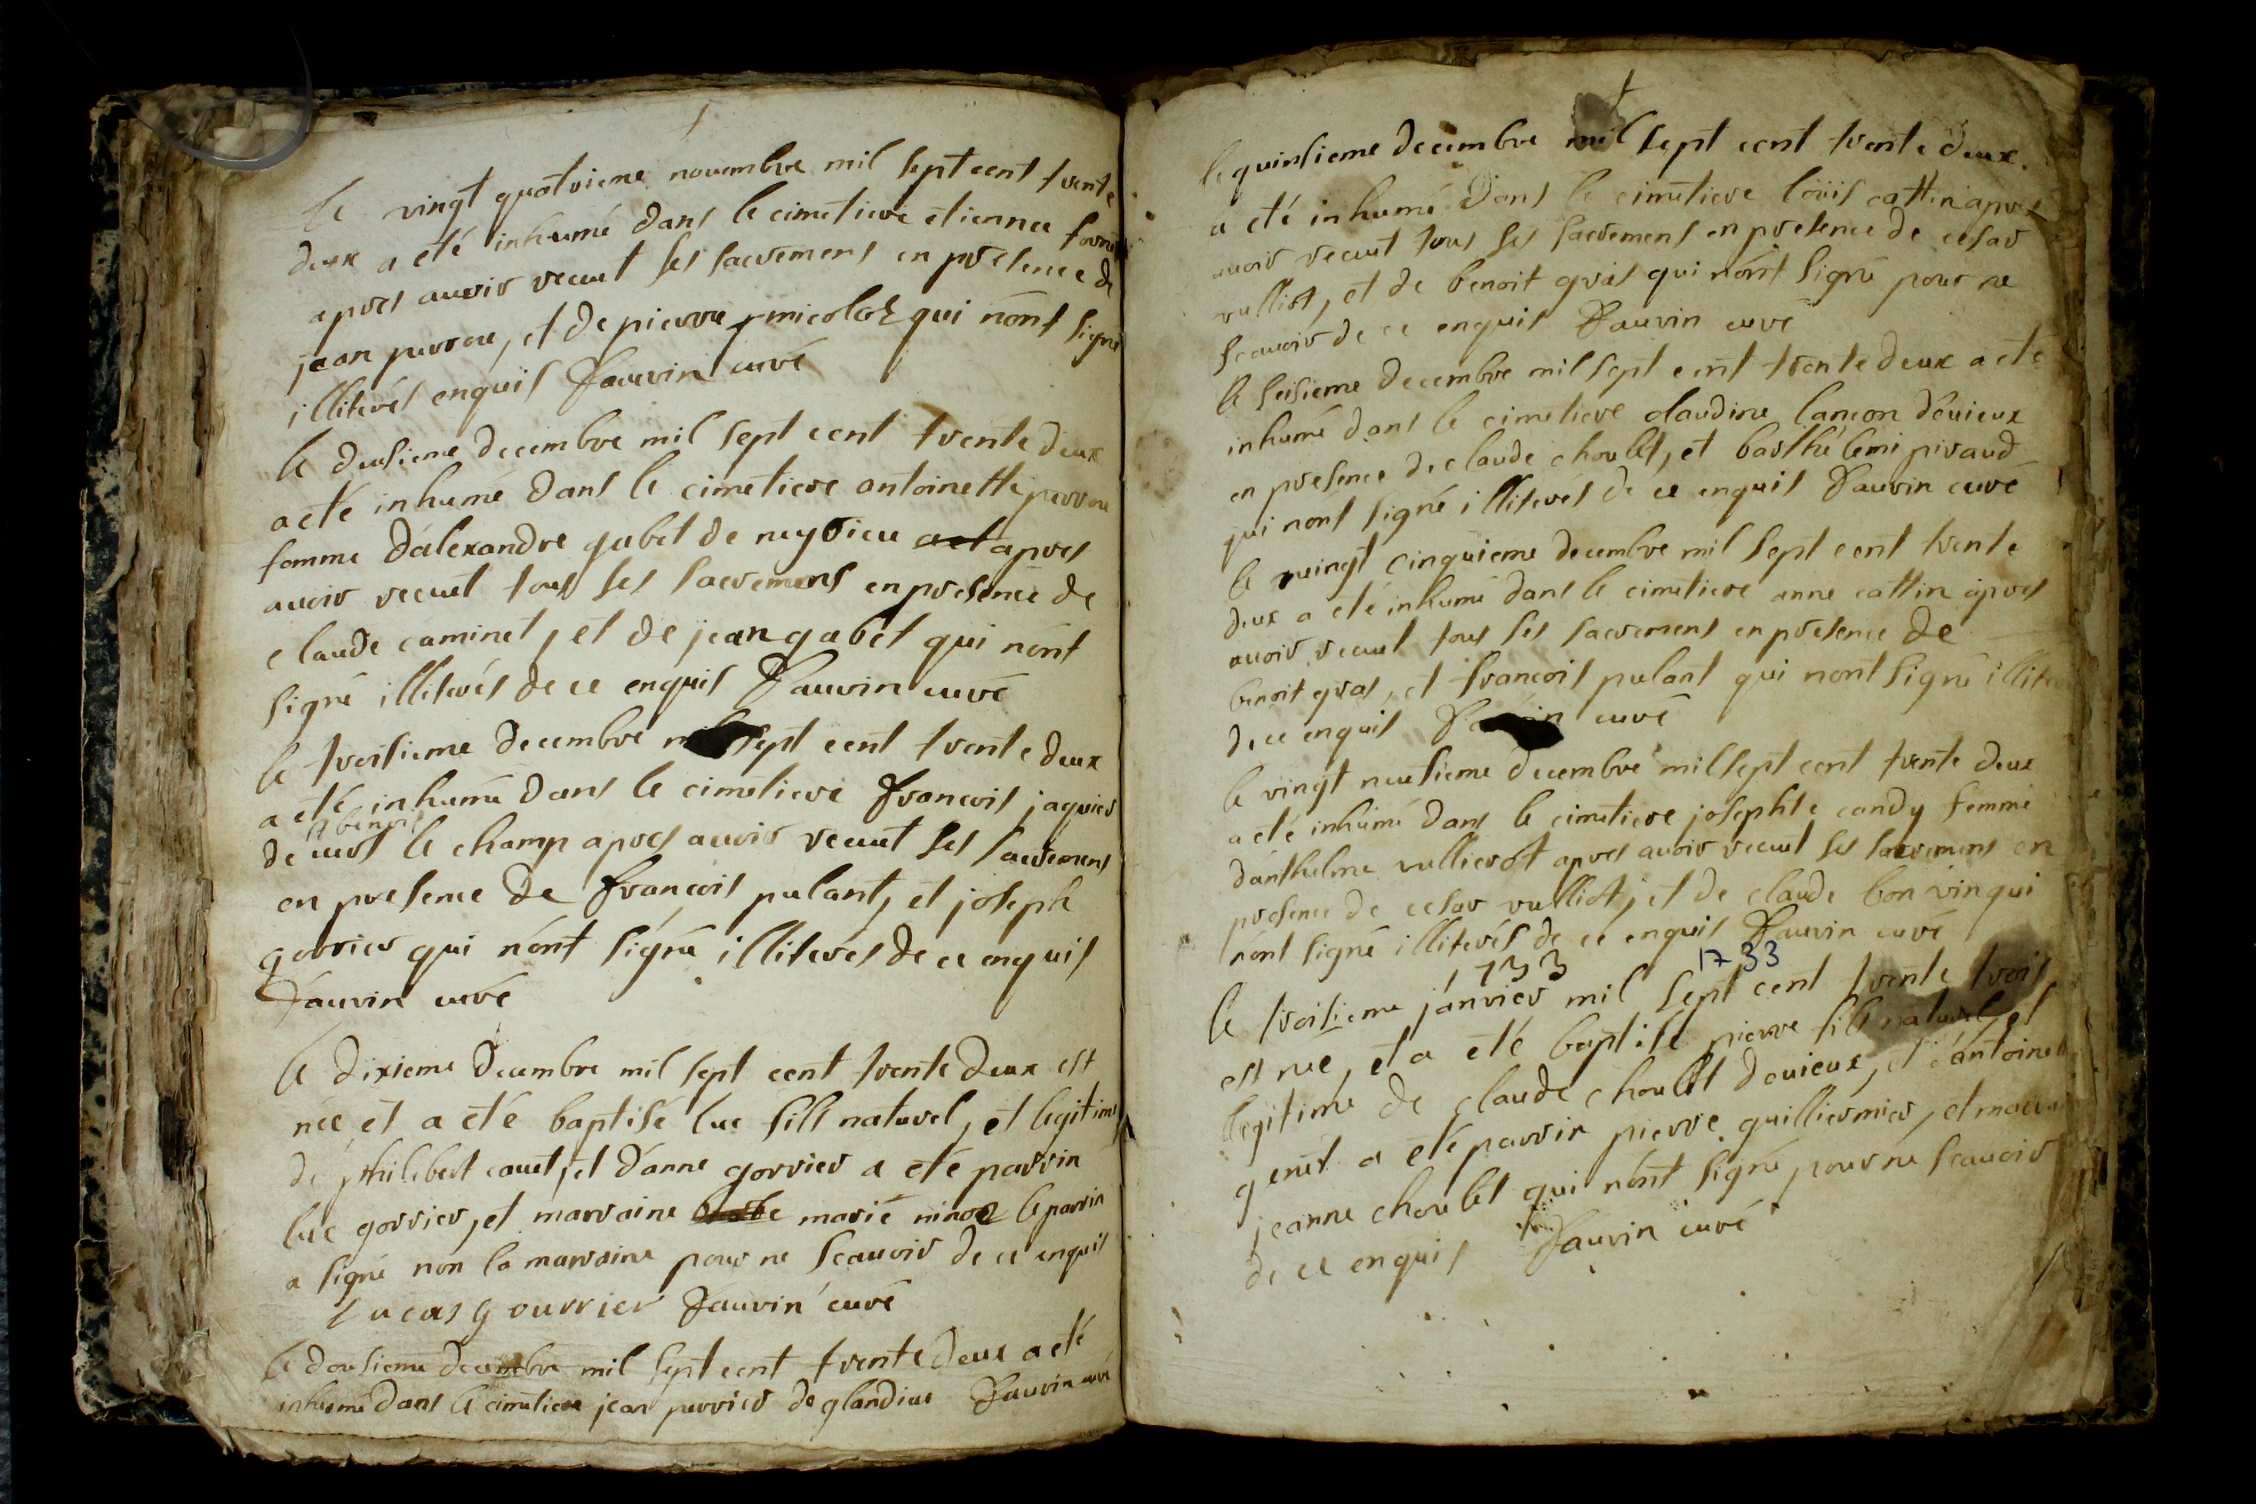 le vingt quatrieme nouembre mil sept cent trente
deux a eté inhumé dans le cimetiere etienne
apres auoir recuut ses sacremens en presence de
jean perron, et de pierre micoloz qui nónt signé
illiterés enquis Fauvin curé
le deusieme decembre mil sept cent trente deux
a eté inhumé dans le cimetiere antoinette perron
femme dálexandre gabet de meyrieu apres
auoir recuut tous ses sacremens en presence de
claude caminet, et de jean gabet qui nónt
signé illiterés de ce enquis Fauvin curé
le troisieme decembre mil sept cent trente deux
a eté inhumé dans le cimetiere francois jaquier
st benoit
de uers le champ apres auoir recuut ses sacremens
en presence de francois pulant, et joseph
gorrier qui nónt signé illiterés de ce enquis
Fauvin curé
le dixieme decembre mil sept cent trente deux est
née et a eté baptisé luc fils naturel, et legitime
de philibert couet, et dánne gorrier a eté parrin
luc gorrier, et marraine marie ninoz le parrin
a signé non la marraine pour ne scauoir de ce enquis
lucas gourrier Fauvin curé
le dousieme decembre mil sept cent trente deux a eté
inhumé dans le cimetiere jean perrier de glandieu Fauvin curé
le quinsieme decembre mil sept cent trente deux
a eté inhumé dans le cimetiere loüis cattin apres
auoir recuut tous ses sacremens en presence de cesar
vulliot, et de benoit gras qui nónt signé pour ne
scauoir de ce enquis Fauvin curé
le seisieme decembre mil sept cent trente deux a eté
inhumé dans le cimetiere claudine lancon déuieux
en presence de claude choulet, et barthélemi piraud
qui nónt signé illiterés de ce enquis Fauvin curé
le vuingt cinquieme decembre mil sept cent trente
deux a eté inhumé dans le cimetiere anne cattin apres
auoir recuut tous ses sacremens en presence de
benoit gras, et francois pulant qui nont signé
de ce enquis Fauvin curé
le vingt neusieme decembre mil sept cent trente deux
a eté inhumé dans le cimetiere josephte candy femme
dánthelme vullierot apres auoir recuut ses sacremens en
presence de cesar vulliot, et de claude bonvin qui
nónt signé illiterés de ce enquis Fauvin curé
1733 1733
le troisieme jánvier mil sept cent trente trois
est née, et a eté baptisé pierre fils naturel, et
legitime de claude choulet deuieux, et dántoinette
genet a eté parrin pierre guilliermier, et marraine
jeanne choulet qui nónt signé pour ne scauoir
de ce enquis Fauvin curé